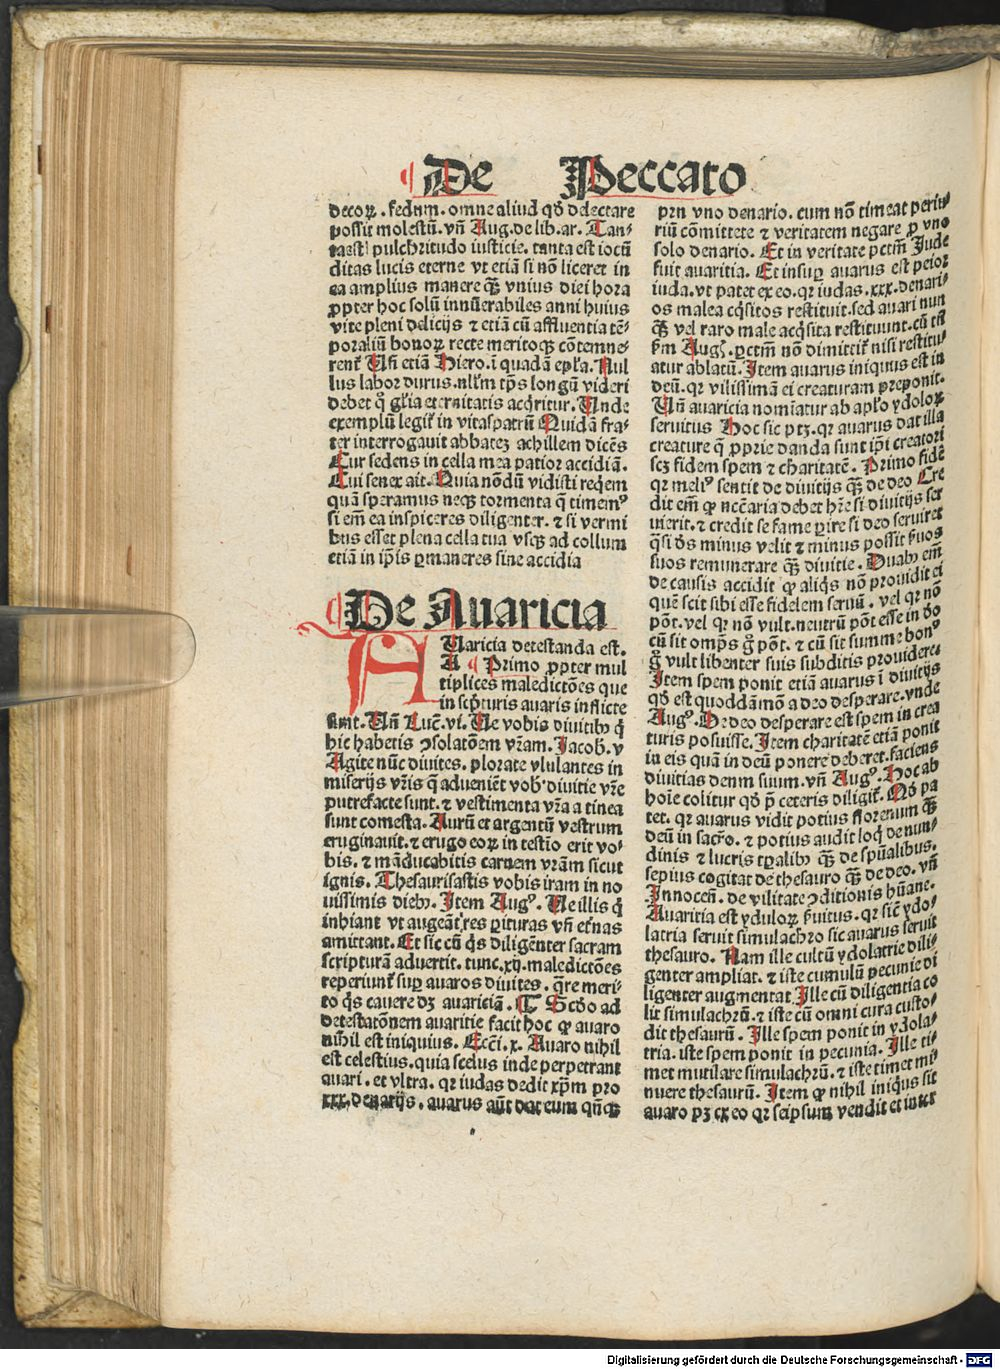 De Peccato
decoꝝ. fedum. omne aliud qḋ delectare
possit molestū. vñ Aug. de lib. ar. Tan-
ta est pulchritudo iusticie. tanta est iocū
ditas lucis eterne vt etiā si nō liceret in
ea amplius manere qꝫ̄ vnius diei hora
ꝓpter hoc solū innūerabiles anni huius
vite pleni delicijs ⁊ etiā cū affluentia tē-
poraliū bonoꝝ recte meritoqꝫ cōtemne-
rent᷑ Vñ etiā Hiero. ī quadā ep̄ła. Nul
lus labor durus. nłłm tp̄s longū videri
debet q̇ gľia eternitatis acq̇ritur. Vnde
exemplū legit᷑ in vitaspatrū Quidā fra-
ter interrogauit abbateꝫ achillem dicēs
Cur sedens in cella mea patior accidiā.
Cui senex ait. Quia nōdū vidisti reqͥem
quā speramus neqꝫ tormenta q̄ timemꝰ
si em̄ ea inspiceres diligenter. ⁊ si vermi
bus esset plena cella tua vsqꝫ ad collum
etiā in ip̄is ꝑmaneres sine accidia
De Auaricia
AUaricia detestanda est.
A Primo ꝓpter mul
tiplices maledictōes que
in scͥpturis auaris inflicte
sunt. Vñ Luc̄. vi. Ue vobis diuitibꝰ q̇
hic habetis ꝯsolatōem vr̄am. Jacob. v
Agite nūc diuites. plorate vlulantes in
miserijs vr̄is q̄ adueniēt vob᷒ diuitie vr̄e
putrefacte sunt. ⁊ vestimenta vr̄a a tinea
sunt comesta. Aurū et argentū vestrum
eruginauit. ⁊ erugo eoꝝ in testīo erit vo-
bis. ⁊ māducabitis carnem vr̄am sicut
ignis. Thesaurisastis vobis iram in no
uissimis diebꝰ. Item Augꝰ. Ue illis q̇
inhiant vt augeāt᷑ res ꝑituras vñ et̄nas
amittant. Et sic cū q̇s diligēter sacram
scripturā aduertit. tunc. xij. maledictōes
reperiunt᷑ suꝑ auaros diuites. q̄re meri-
to q̇s cauere dꝫ auariciā. ¶ Scḋo ad
detestatōnem auaritie facit hoc ꝙ auaro
nihil est iniquius. Ecc̄i. x. Auaro nihil
est celestius. quia scelus inde perpetrant
auari. et vltra. qꝛ iudas dedit xp̄m pro
xxx. denarijs. auarus aūt dat eum qn̄qꝫ
prn vno denario. eum nō timeat periu-
riū cōmittete ⁊ veritatem negare ꝓ vno
solo denario. Et in veritate pctm̄ Jude
fuit auaritia. Et insuꝑ auarus est peior
iuda. vt patet ex eo. qꝛ iudas. xxx. denari-
os malea cq̇sitos restituit. sed auari nun
qꝫ̄ vel raro male acq̇sita restituunt. cū tn̄
fm̄ Augꝰ. pctm̄ nō dimittit᷑ nisi restitu-
atur ablatū. Item auarus iniquus est in
deū. qꝛ vilissimā ei creaturam preponit.
Vñ auaricia nomīatur ab apľo ydoloꝝ
seruitus Hoc sic ptꝫ. qꝛ auarus dat illa
creature q̄ ꝓprie danda sunt ip̄i creatori
scꝫ fidem spem ⁊ charitatē. Primo fidē
qꝛ meliꝰ sentit de diuitijs qꝫ̄ de deo Cre
dit em̄ ꝙ nc̄c̄aria debet hr̄e si diuitijs ser
uierit. ⁊ credit se fame ꝑire si deo seruiret
q̄si ds̄ minus velit ⁊ minus possit ẜuos
suos remunerare qꝫ̄ diuitie. Duabꝰ em̄
de causis accidit ꝙ aliq̇s nō prouidit ei
quē scit sibi esse fidelem seruū. vel qꝛ nō
pōt. vel qꝛ nō vult. neutrū pōt esse in dō
cū sit omp̄s g̊ pōt. ⁊ cū sit summe bonꝰ
g̊ vult libenter suis subditis prouidere.
Item spem ponit etiā auarus ī diuitijs
qḋ est quoddāmō a deo desperare. vnde
Augꝰ. De deo desperare est spem in crea
turis posuisse. Item charitatē etiā ponit
in eis quā in deū ponere deberet. faciens
diuitias deum suum. vñ Augꝰ. Hoc ab
hoīe colitur qḋ p̄ ceteris diligit᷑. Qḋ pa
tet. qꝛ auarus vidit potius florenum qꝫ̄
deū in sacr̄o. ⁊ potius audit loq̇ de nun-
dinis ⁊ lucris tꝑalibꝰ qꝫ̄ de spūalibus.
sepius cogitat de thesauro qꝫ̄ de deo. vñ
Innocen̄. de vilitate ꝯditionis hūane.
Auaritia est ydoloꝝ ẜuitus. qꝛ sic̄ ydo-
latria seruit simulachro sic auarus seruit
thesauro. Nam ille cultū ydolatrie dili-
genter ampliat. ⁊ iste cumulū pecunie di
ligenter augmentat Ille cū diligentia co
lit simulachrū. ⁊ iste cū omni cura custo-
dit thesaurū. Ille spem ponit in ydola-
tria. iste spem ponit in pecunia. Ille ti-
met mutilare simulachrū. ⁊ iste timet mi-
nuere thesaurū. Item ꝙ nihil iniq̇us sit
auaro pꝫ ex eo qꝛ seipsum vendit et inter
Digitalisierung gefördert durch die Deutsche Forschungsgemeinschaft - DFG